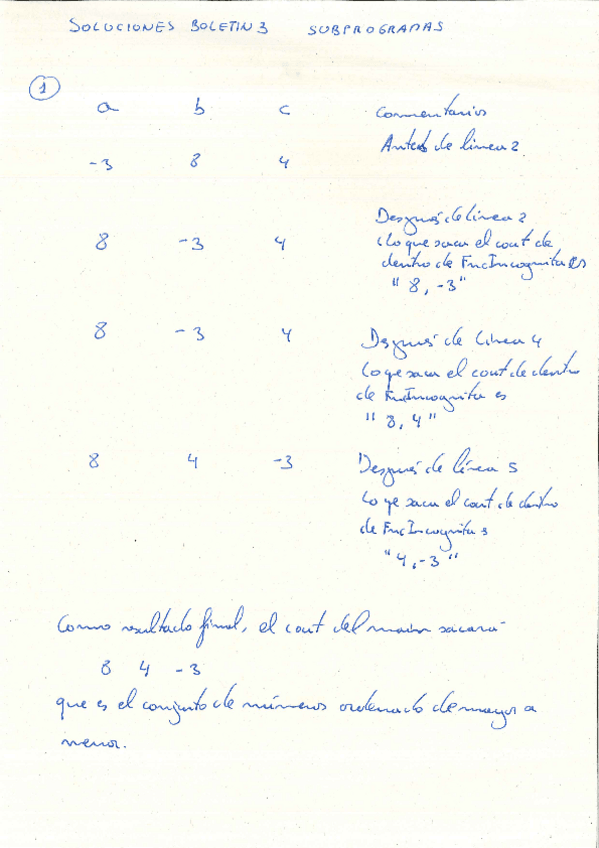 SOLUCIONES BOLETIN 3 SUBPROGRAMAS
1
a b c Commentarios
-3 8 4 Antes de linea 2
8 -3 4 Después de linea 2
Lo que saca el cout de
dentro de FncIncognita es
"8, -3"
8 -3 4 Después de linea 4
Lo qe saca el cout de dentro
de FncIncognita es
"8, 4"
8 4 -3 Después de línea 5
Lo qe saca el cout de dentro
de FncIncognita s
"4, -3"
Como resultado final, el cout del main sacará
8 4 -3
que es el conjunto de números ordenado de mayor a
menor.